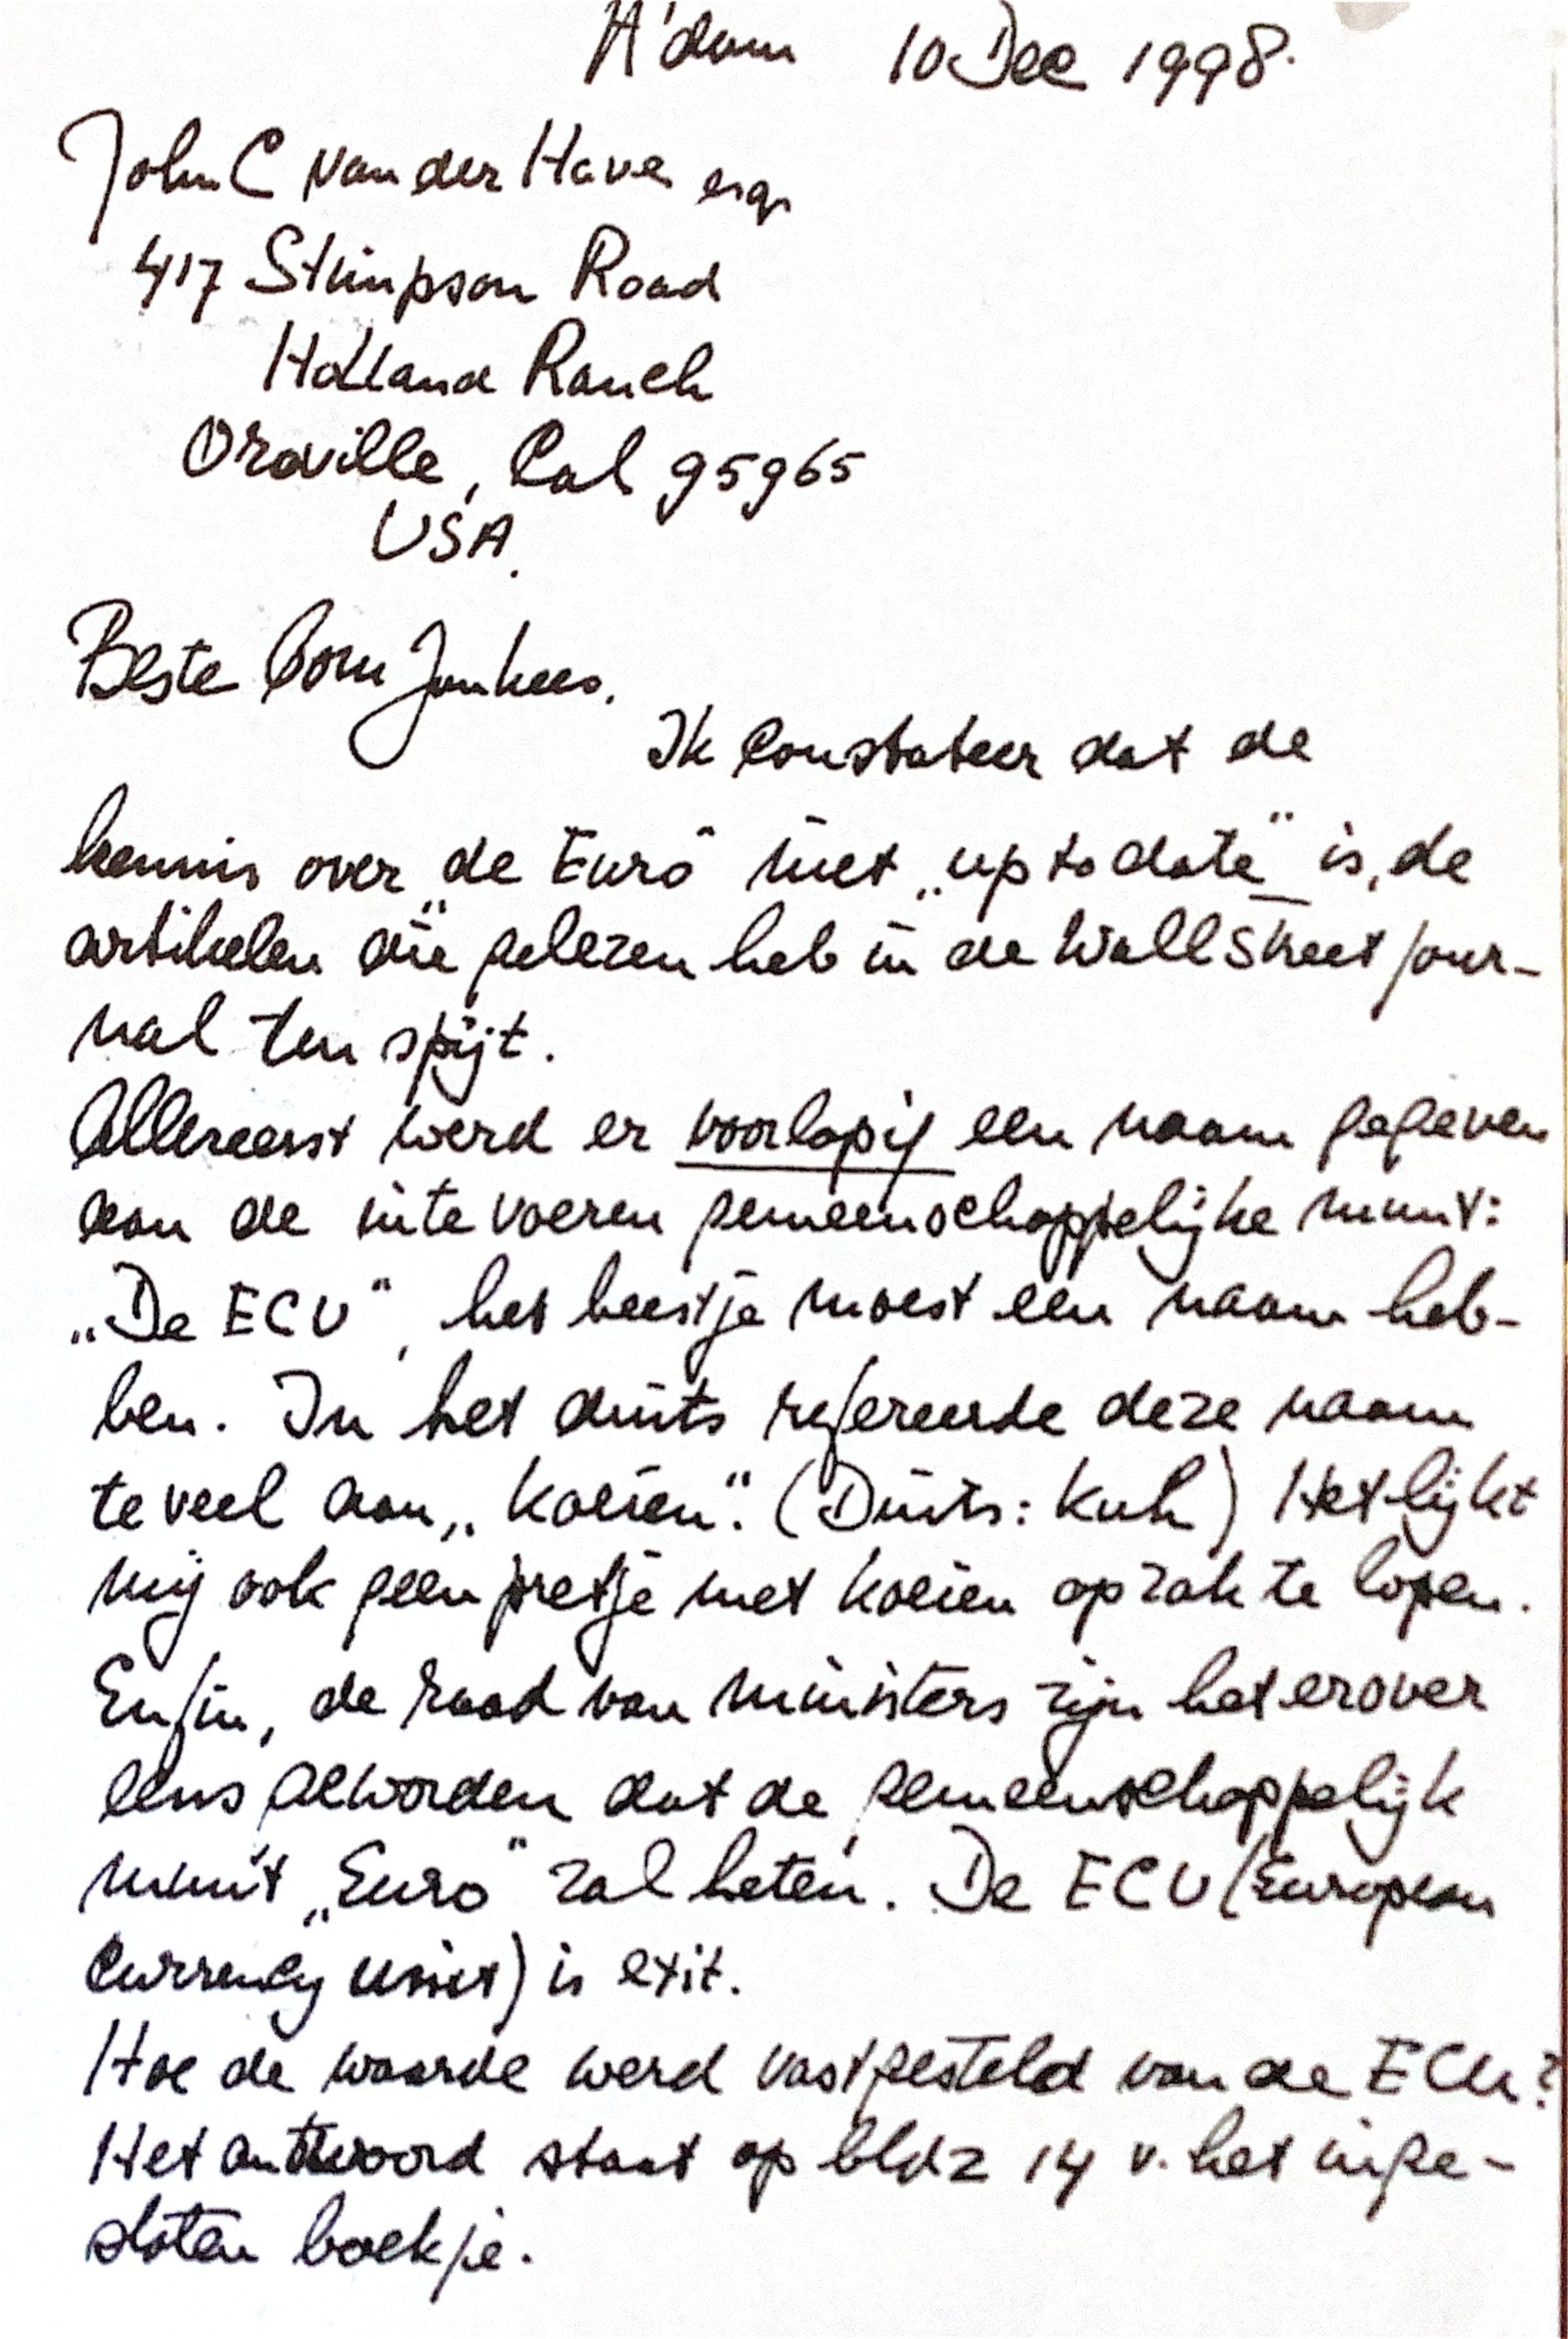 A'dam 10 Dec 1998.
John C van der Have esqr
417 Stimpson Road
Holland Ranch
Oroville, Cal 95965
USA.
Beste Oom Jankees.
Ik Constateer dat de
kennis over „de Euro" niet „up to date" is, de
artikelen die gelezen heb in de Wall Street Jour-
nal ten spijt.
Allereerst werd er voorlopig een naam gegeven
aan de in te voeren gemeenschappelijke munt:
„De ECU", het beestje moest een naam heb-
ben. In het duits refereerde deze naam
te veel aan „koeien". (Duits: Kuh) Het lijkt
mij ook geen pretje met koeien op zak te lopen.
Enfin, de raad van ministers zijn het erover
eens geworden dat de gemeenschappelijk
munt „Euro" zal heten. De ECU (European
Currency Unit) is exit.
Hoe de waarde werd vastgesteld van de ECU?
Het antwoord staat op bldz 14 v. het inge-
sloten boekje.